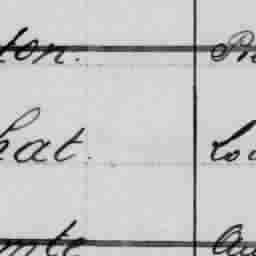 ton. Pr
hat. Lou
mte Au